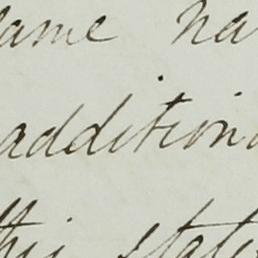 lame na
addition
this state